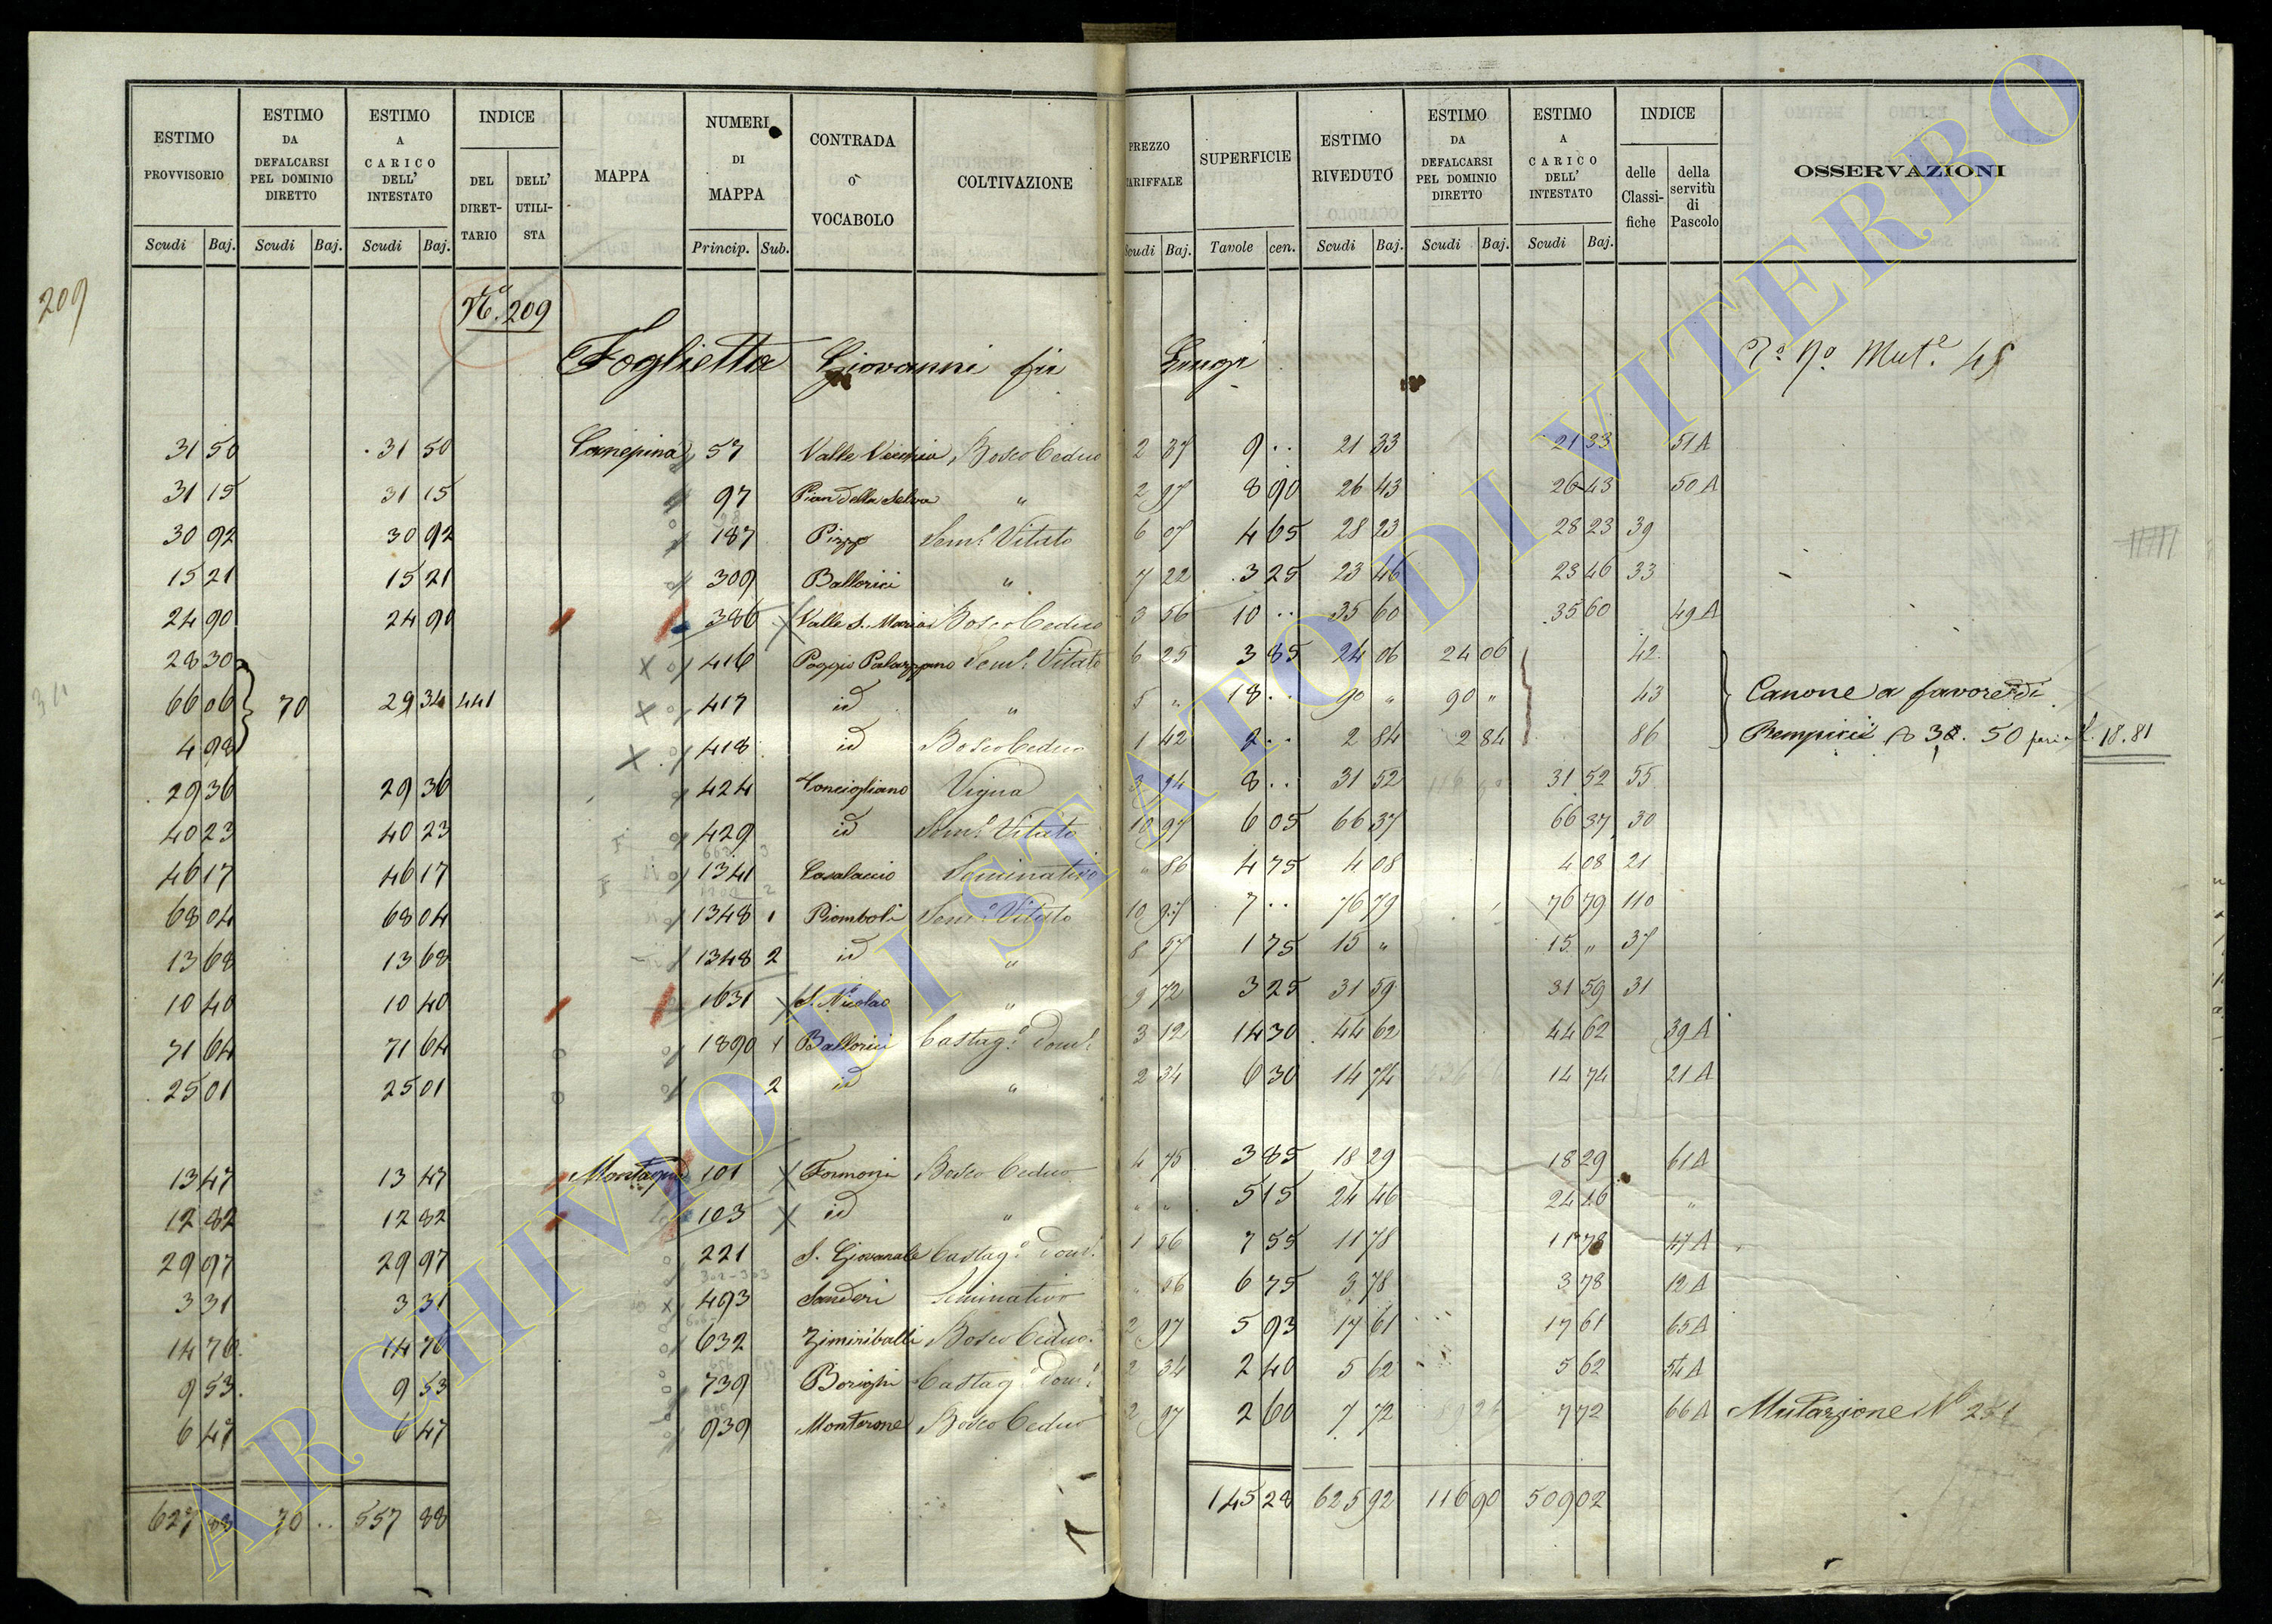 ESTIMO PROVVISORIO Scudi Baj. | ESTIMO DA DEFALCARSI PEL DOMINIO DIRETTO Scudi Baj. | ESTIMO A CARICO DELL' INTESTATO Scudi Baj. | INDICE DEL DIRETTARIO DELL' UTILISTA | MAPPA | NUMERI DI MAPPA Princip. Sub. | CONTRADA o VOCABOLO | COLTIVAZIONE | PREZZO TARIFFALE Scudi Baj. | SUPERFICIE Tavole cen. | ESTIMO RIVEDUTO Scudi Baj. | ESTIMO DA DEFALCARSI PEL DOMINIO DIRETTO Scudi Baj. | ESTIMO A CARICO DELL' INTESTATO Scudi Baj. | INDICE delle Classifiche della servitù di Pascolo | OSSERVAZIONI
209
No. 209
Foglietta Giovanni fu Luigi
Mut.e 45
31 50 31 50 Canepina 57 Valle Vecchia Bosco Ceduo 2 37 9 .. 21 33 21 33 51 A
31 15 31 15 97 Pian della Selva " 2 97 8 90 26 43 26 43 50 A
30 92 30 92 187 Pizzo Sem.o Vitato 6 07 4 65 28 23 28 23 39
15 21 15 21 309 Ballorici " 7 22 3 25 23 46 23 46 33
24 90 24 90 386 Valle S. Maria Bosco Ceduo 3 56 10 .. 35 60 35 60 49 A
28 30 416 Poggio Palazzano Sem.o Vitato 6 25 3 85 24 06 24 06 42
66 06 70 29 34 441 417 id " 5 " 18 .. 90 " 90 " 43 Canone a favore di
4 98 418 id Bosco Ceduo 1 42 2 .. 2 84 2 84 86 50 18.81
29 36 29 36 424 Concigliano Vigna 3 94 8 .. 31 52 31 52 55
40 23 40 23 429 id Sem.o Vitato 10 97 6 05 66 37 66 37 30
46 17 46 17 1341 Casalaccio Seminativo " 86 4 75 4 08 4 08 21
68 04 68 04 1348 1 Piomboli Sem.o Vitato 10 97 7 .. 76 79 76 79 110
13 68 13 68 1348 2 id " 8 57 1 75 15 " 15 " 37
10 40 10 40 1631 S. Nicolao " 9 72 3 25 31 59 31 59 31
71 64 71 64 1890 1 Ballorici Castag.o Dom.o 3 12 14 30 44 62 44 62 39 A
25 01 25 01 2 id " 2 34 6 30 14 74 14 74 21 A
13 47 13 47 Montagna 101 Formoni Bosco Ceduo 4 75 3 85 18 29 18 29 61 A
12 82 12 82 103 id " " " 5 15 24 46 24 46 "
29 97 29 97 221 S. Giovanale Castag.o Dom.o 1 56 7 55 11 78 11 78 47 A
3 31 3 31 493 Sanderi Seminativo " 56 6 75 3 78 3 78 12 A
14 76 14 76 632 Zimiriballi Bosco Ceduo 2 97 5 93 17 61 17 61 65 A
9 53 9 53 739 Borighi Castag.o Dom.o 2 34 2 40 5 62 5 62 54 A
6 47 6 47 939 Monterone Bosco Ceduo 2 97 2 60 7 72 7 72 66 A Mutazione N.
627 88 70 .. 557 88 145 28 625 92 116 90 509 02
ARCHIVIO DI STATO DI VITERBO